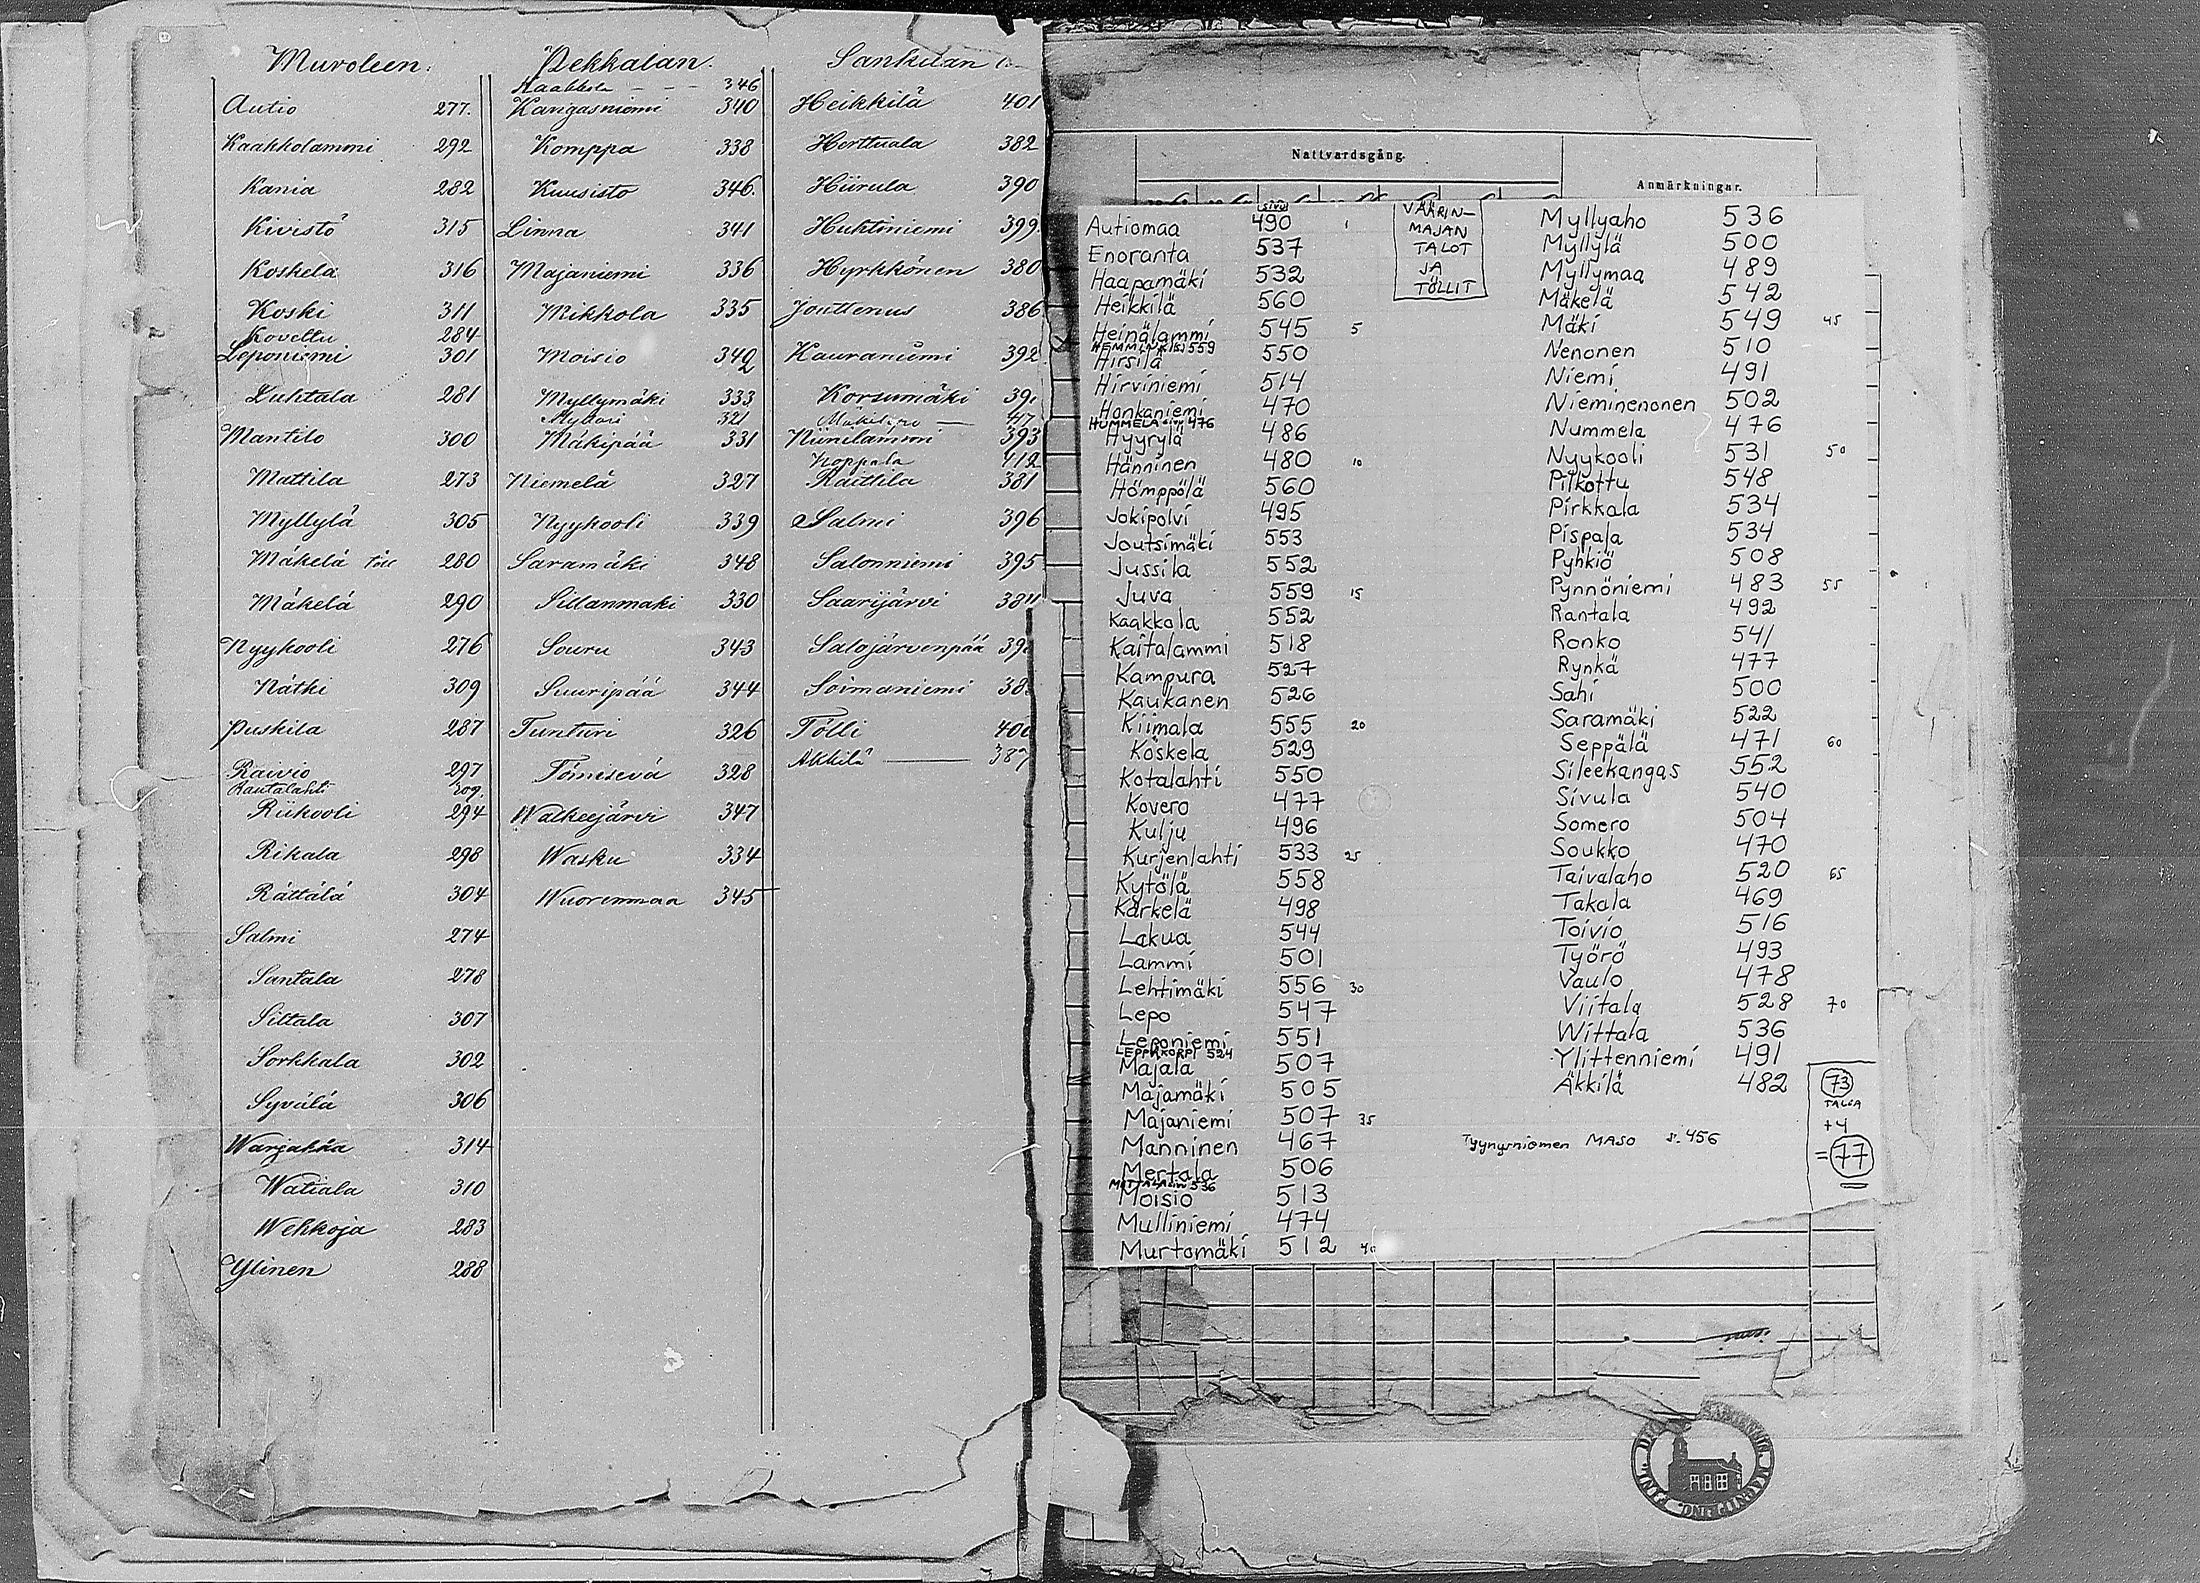 Muroleen.
Autio 277.
Kaakkolammi 292
Kania 282
Kivistö 315
Koskela 316
Koski 311
Kovettu 284
Leponiemi 301
Luhtala 281
Mantilo 300
Mattila 273
Myllylä 305
Mäkelä 280
Mäkelä 290
Nyykooli 276
Nätki 309
Puskila 287
Raivio 297
Rautalahti
Riikooli 294
Rikala 298
Rättälä 304
Salmi 274
Santala 278
Siltala 307
Sorkkala 302
Syvälä 306
Warjakka 314
Watiala 310
Wehkoja 283
Ylinen 288
Pekkalan.
Kaakkola - - - 346
Kangasniemi 340
Komppa 338
Kuusisto 346.
Linna 341
Majaniemi 336
Mikkola 335
Moisio 342
Myllymäki 333
321
Mäkipää 331
Niemelä 327
Nyykooli 339
Saramäki 348
Sillanmäki 330
Souru 343
Suuripää 344
Tunturi 326
Tömisevä 328
Walkeejärvi 347
Wasku 334
Wuorenmaa 345
Sankilan
Heikkilä 401
Herttuala 382
Hiirula 390
Huhtiniemi 399
Hyrkkönen 380
Jouttenus 386
Kauraniemi 392
Korsumäki
Niinilammi 393
Noppala 412
Raittila 381
Salmi 396
Salonniemi 395
Saarijärvi
Salojärvenpää
Soimaniemi
Tölli 400
Äkkilä 387
Nattvardsgång.
Anmärkningar.
SIVU
VÄÄRIN-
MAJAN
TALOT
JA
TÖLLIT
Autiomaa 490 1
Enoranta 537
Haapamäki 532
Heikkilä 560
Heinälammi 545 5
HEMMINKKI 559
Hirsilä 550
Hirviniemi 514
Honkaniemi 470
HUMMELA 476
Hyyrylä 486
Hänninen 480 10
Hömppölä 560
Jokipolvi 495
Joutsimäki 553
Jussila 552
Juva 559 15
Kaakkola 552
Kaitalammi 518
Kampura 527
Kaukanen 526
Kiimala 555 20
Koskela 529
Kotalahti 550
Kovero 477
Kulju 496
Kurjenlahti 533 25
Kytölä 558
Kärkelä 498
Lakua 544
Lammi 501
Lehtimäki 556 30
Lepo 547
Leponiemi 551
LEPPÄKORPI 524
Majala 507
Majamäki 505
Majaniemi 507 35
Manninen 467
Mertala 506
536
Moisio 513
Mulliniemi 474
Murtomäki 512 40
Myllyaho 536
Myllylä 500
Myllymaa 489
Mäkelä 542
Mäki 549 45
Nenonen 510
Niemi 491
Nieminenonen 502
Nummela 476
Nyykooli 531 50
Pitkottu 548
Pirkkala 534
Pispala 534
Pyhkiö 508
Pynnöniemi 483 55
Rantala 492
Ronko 541
Rynkä 477
Sahi 500
Saramäki 522
Seppälä 471 60
Sileekangas 552
Sivula 540
Somero 504
Soukko 470
Taivalaho 520 65
Takala 469
Toivio 516
Työrö 493
Vaulo 478
Viitala 528 70
Wittala 536
Ylittenniemi 491
Äkkilä 482
73
TALOA
+4
=77
Tyynysniemen MASO s. 456